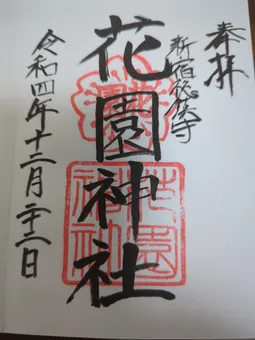 奉拝
新宿総鎮守
花園神社
令和四年十二月二十二日
花園
神社